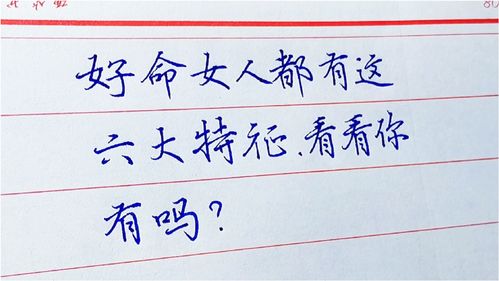 好命女人都有这
六大特征、看看你
有吗?